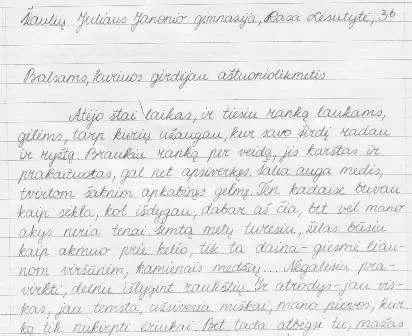 Šiaulių Juliaus Janonio gimnazija, Rasa Lėsutytė, 3b
Balsams, kuriuos girdijau aštuoniolikmetis
Atėjo štai laikas, ir tiesiu ranką laukams,
gilėms, tarp kurių užaugau, kur savo širdį radau
ir ryžtą. Braukiu ranką per veidą, jis karštas ir
prakaituotas, gal net apsiverkęs. Šalia auga medis,
tvirtom šaknim apkabinęs gelmę. Ten kadaise buvau
kaip sėkla, kol išdygau, dabar aš čia, bet vėl mano
akys neria tenai. Šimtą metų turėsiu, žilas būsiu
kaip akmuo prie kelio, tik ta daina-giesmė liau-
nom viršūnėm, kamienais medžių... Negalėsiu pra-
virkti, delnu išlygint raukšlių. Ir atrodys-jau vis-
kas, jau temsta, užsiveria miškai, mano pievos, kur
ką tik nukirpti ėriukai. Bet tada atbėgsi tu, mažas